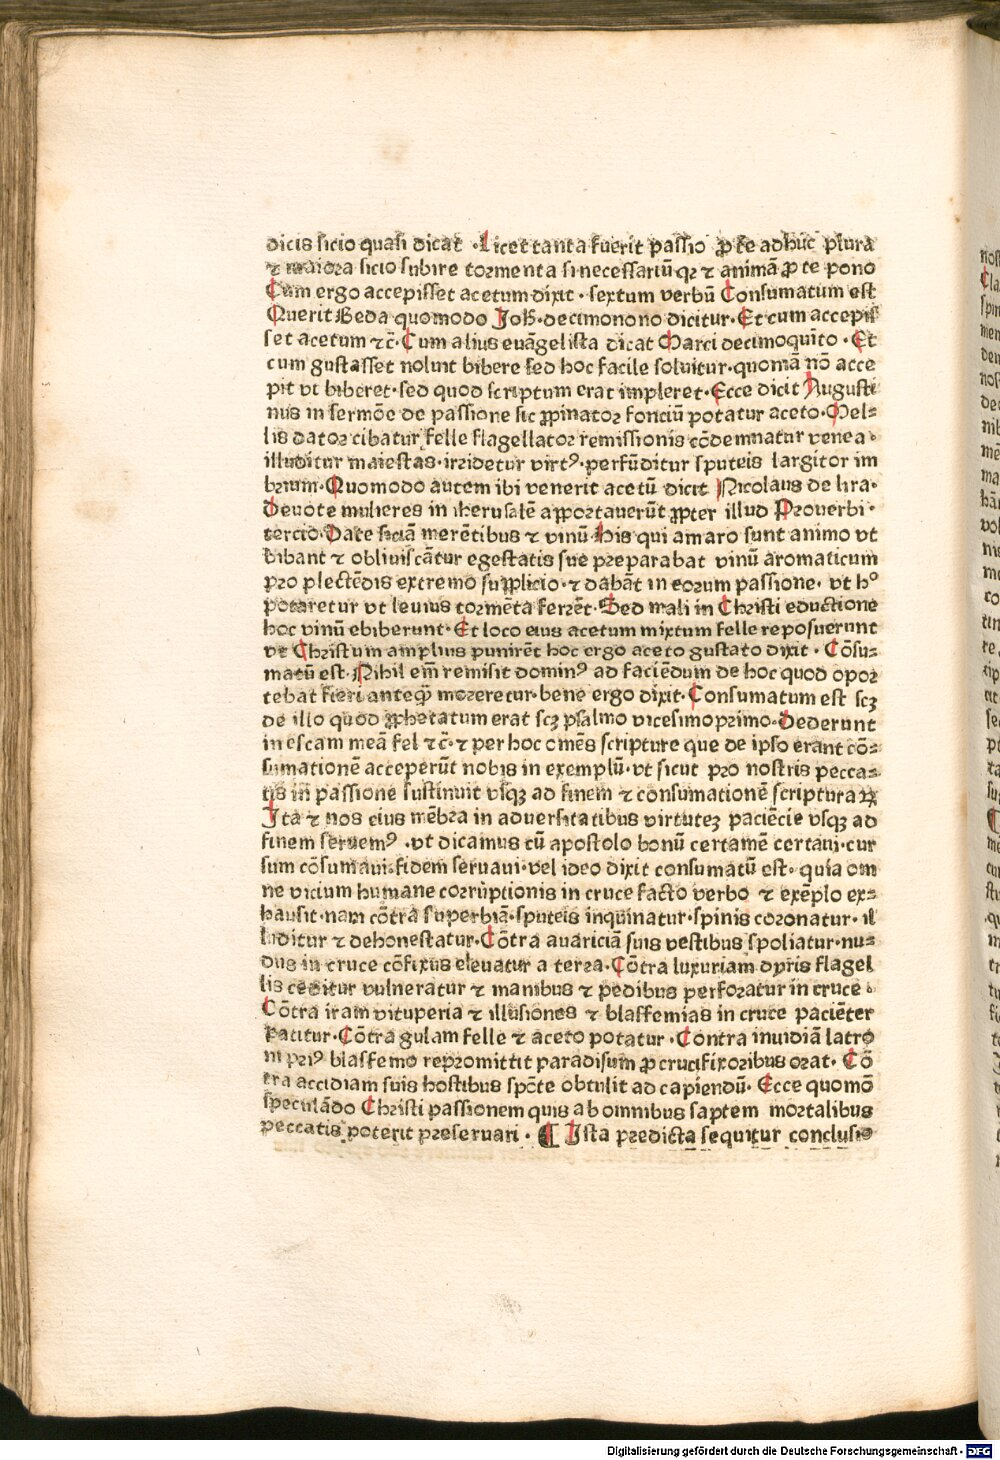 dicis sicio quasi dicat ·Licet tanta fuerit passio ꝓ te adhuc plura
⁊ maiora sicio subire tormenta si necessariũ qꝛ ⁊ animã ꝓ te pono
Cum ergo accepisset acetum dixit · sextum verbũ Consumatum est
Querit Beda quomodo Joh̃·decimonono dicitur·Et cum accepis
set acetum ⁊c̃·Cum alius euãgelista dicat Marci decimoquĩto ·Et
cum gustasset noluit bibere sed hoc facile soluitur·quoniã nõ acce
pit vt biberet·sed quod scriptum erat impleret·Ecce dicit Augusti
nus in sermõe de passione sic ꝓpinator fonciũ potatur aceto·Mel⸗
lis dator cibatur felle flagellator remissionis cõdemnatur venea·
illuditur maiestas·irridetur virtꝰ·perfũditur sputeis largitor im
brium·Quomodo autem ibi venerit acetũ dicit Nicolaus de lira·
Deuote mulieres in iherusalẽ apportauerũt ꝓpter illud Prouerbi·
tercio·Date siciã merẽtibus ⁊ vinũ·His qui amaro sunt animo vt
bibant ⁊ obliuiscãtur egestatis sue preparabat vinũ aromaticum
pro plectẽdis extremo supplicio·⁊ dabãt in eorum passione· vt hᵒ
potaretur vt leuius tormẽta ferrẽt·Sed mali in Christi eductione
hoc vinũ ebiberunt·Et loco eius acetum mixtum felle reposuerunt
vt Christum amplius punirẽt hoc ergo aceto gustato dixit · Cõsu⸗
matũ est·Nihil em̃ remisit dominꝰ ad faciẽdum de hoc quod opor
tebat fieri anteq̃ moreretur·bene ergo dixit·Consumatum est scꝫ
de illo quod ꝓphetatum erat scꝫ psalmo vicesimoprimo·Dederunt
in escam meã fel ⁊c̃·⁊ per hoc omẽs scripture que de ipso erant cõ⸗
sumationẽ acceperũt nobis in exemplũ·vt sicut pro nostris pecca⸗
tis in passione sustinuit vsqꝫ ad finem ⁊ consumationẽ scripturaꝝ
Ita ⁊ nos eius mẽbra in aduersitatibus virtuteꝫ paciẽcie vsqꝫ ad
finem seruemꝰ ·vt dicamus cũ apostolo bonũ certamẽ certaui·cur
sum cõsumaui·fidem seruaui·vel ideo dixit consumatũ est· quia om
ne vicium humane corrũptionis in cruce facto verbo ⁊ exẽplo ex⸗
hausit·nam cõtra superbiã·sputeis inquinatur·spinis coronatur·il
luditur ⁊ dehonestatur·Cõtra auariciã suis vestibus spoliatur·nu⸗
dus in cruce cõfixus eleuatur a terra·Cõtra luxuriam dyris flagel
lis ceditur vulneratur ⁊ manibus ⁊ pedibus perforatur in cruce ·
Cõtra iram vituperia ⁊ illusiones ⁊ blasfemias in cruce paciẽter
patitur·Cõtra gulam felle ⁊ aceto potatur ·Contra inuidiã latro
ni priꝰ blasfemo repromittit paradisum ꝓ crucifixoribus orat· Cõ
tra accidiam suis hostibus spõte obtulit ad capiendũ· Ecce quomõ
speculãdo Christi passionem quis ab omnibus saptem mortalibus
peccatis poterit preseruari · ¶ Ista predicta sequitur conclusio
Digitalisierung gefördert durch die Deutsche Forschungsgemeinschaft - DFG